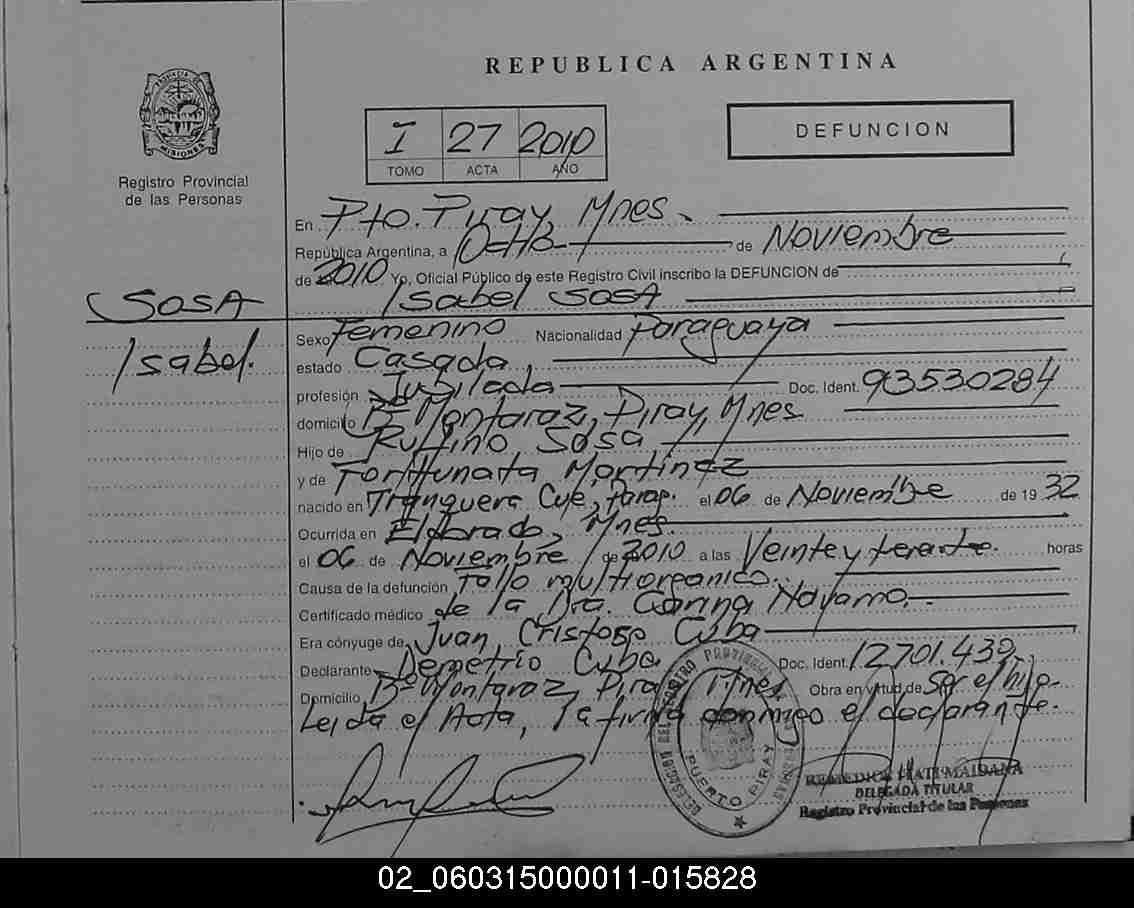 REPUBLICA ARGENTINA
PROVINCIA DE MISIONES
Registro Provincial
de las Personas
I 27 2010
TOMO ACTA AÑO
DEFUNCION
En Pto. Piray, Mnes.
República Argentina, a Ocho de Noviembre
de 2010 Yo, Oficial Público de este Registro Civil inscribo la DEFUNCION de
SOSA Isabel SOSA
Isabel.
Sexo Femenino Nacionalidad Paraguaya
estado Casada,
profesión Jubilada Doc. Ident. 93530284
domicilio Bº Montaraz, Piray, Mnes
Hijo de Ruffino Sosa
y de Martinez
nacido en Tranquera Cue, Parag. el 06 de Noviembre de 19 32
Ocurrida en Eldorado, Mnes.
el 06 de Noviembre de 2010 a las Veinte y horas
Causa de la defunción Fallo multiorganico.
Certificado médico de la Dra. Carina
Era cónyuge de Juan Cristobo Cuba
Declarante Demetrio Cuba Doc. Ident. 12701.430
Domicilio Bº Montaraz, Piray Mnes Obra en virtud de Ser el hijo.
Leida el Acta, la firma conmigo el declarante.
PUERTO PIRAY
REMEDIOS MAIDANA
DELEGADA TITULAR
Registro Provincial de las Personas
02_060315000011-015828